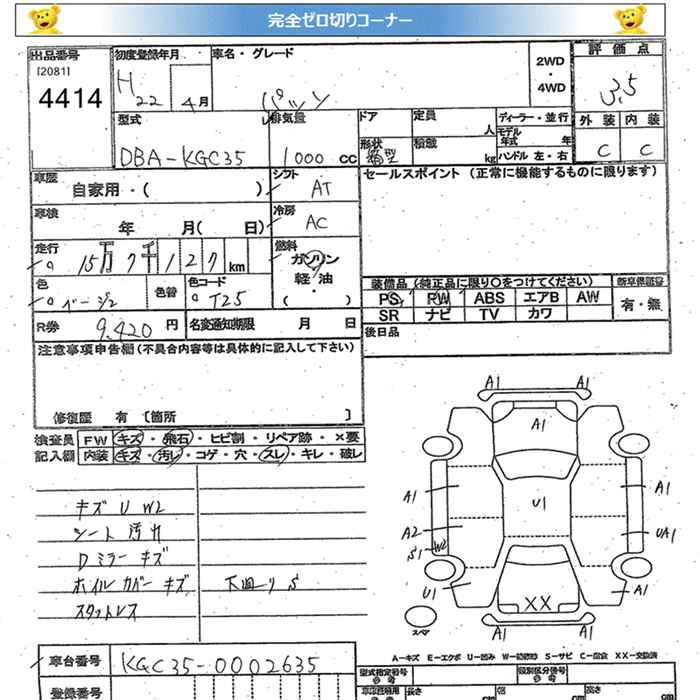 完全ゼロ切りコーナー
出品番号 初度登録年月 車名・グレード 2WD・4WD 評価点
[2081]
4414 H 22 4月 パッソ 3.5
型式 排気量 ドア 定員 人 ディーラー・並行 外装 内装
DBA-KGC35 1000 CC 形状 箱型 積載 kg モデル年式 年 ハンドル 左・右 C C
車歴 自家用・( ) シフト AT セールスポイント (正常に機能するものに限ります)
車検 年 月( 日) 冷房 AC
走行 15万7千127km 燃料 ガソリン 軽油 ( ・ )
装備品 (純正品に限り○をつけてください)
色 ベージュ 色替 色コード T25 PS PW ABS エアB AW 有・無
SR ナビ TV カワ
R券 9,420 円 名変通知期限 月 日 後日品
注意事項申告欄 (不具合内容等は具体的に記入して下さい)
修復歴 有 [箇所 ]
検査員 FW キズ・飛石・ヒビ割・リペア跡・×要
記入欄 内装 キズ・汚レ・コゲ・穴・スレ・キレ・破レ
キズ U W2
シート 汚レ
Dミラー キズ
ホイルカバー キズ 下廻り S
スタットレス
A1 A1
A1
A1 U1 A1
A2 UA1
S1 W2
U1 XX A1
スペア A1 A1
A-キズ E-エクボ U-凹み W-補修跡 S-サビ C-腐食 XX-交換済
車台番号 KGC35-0002635
型式指定番号 参考 類別区分番号 参考
登録番号 長さ cm 幅 cm 高さ cm